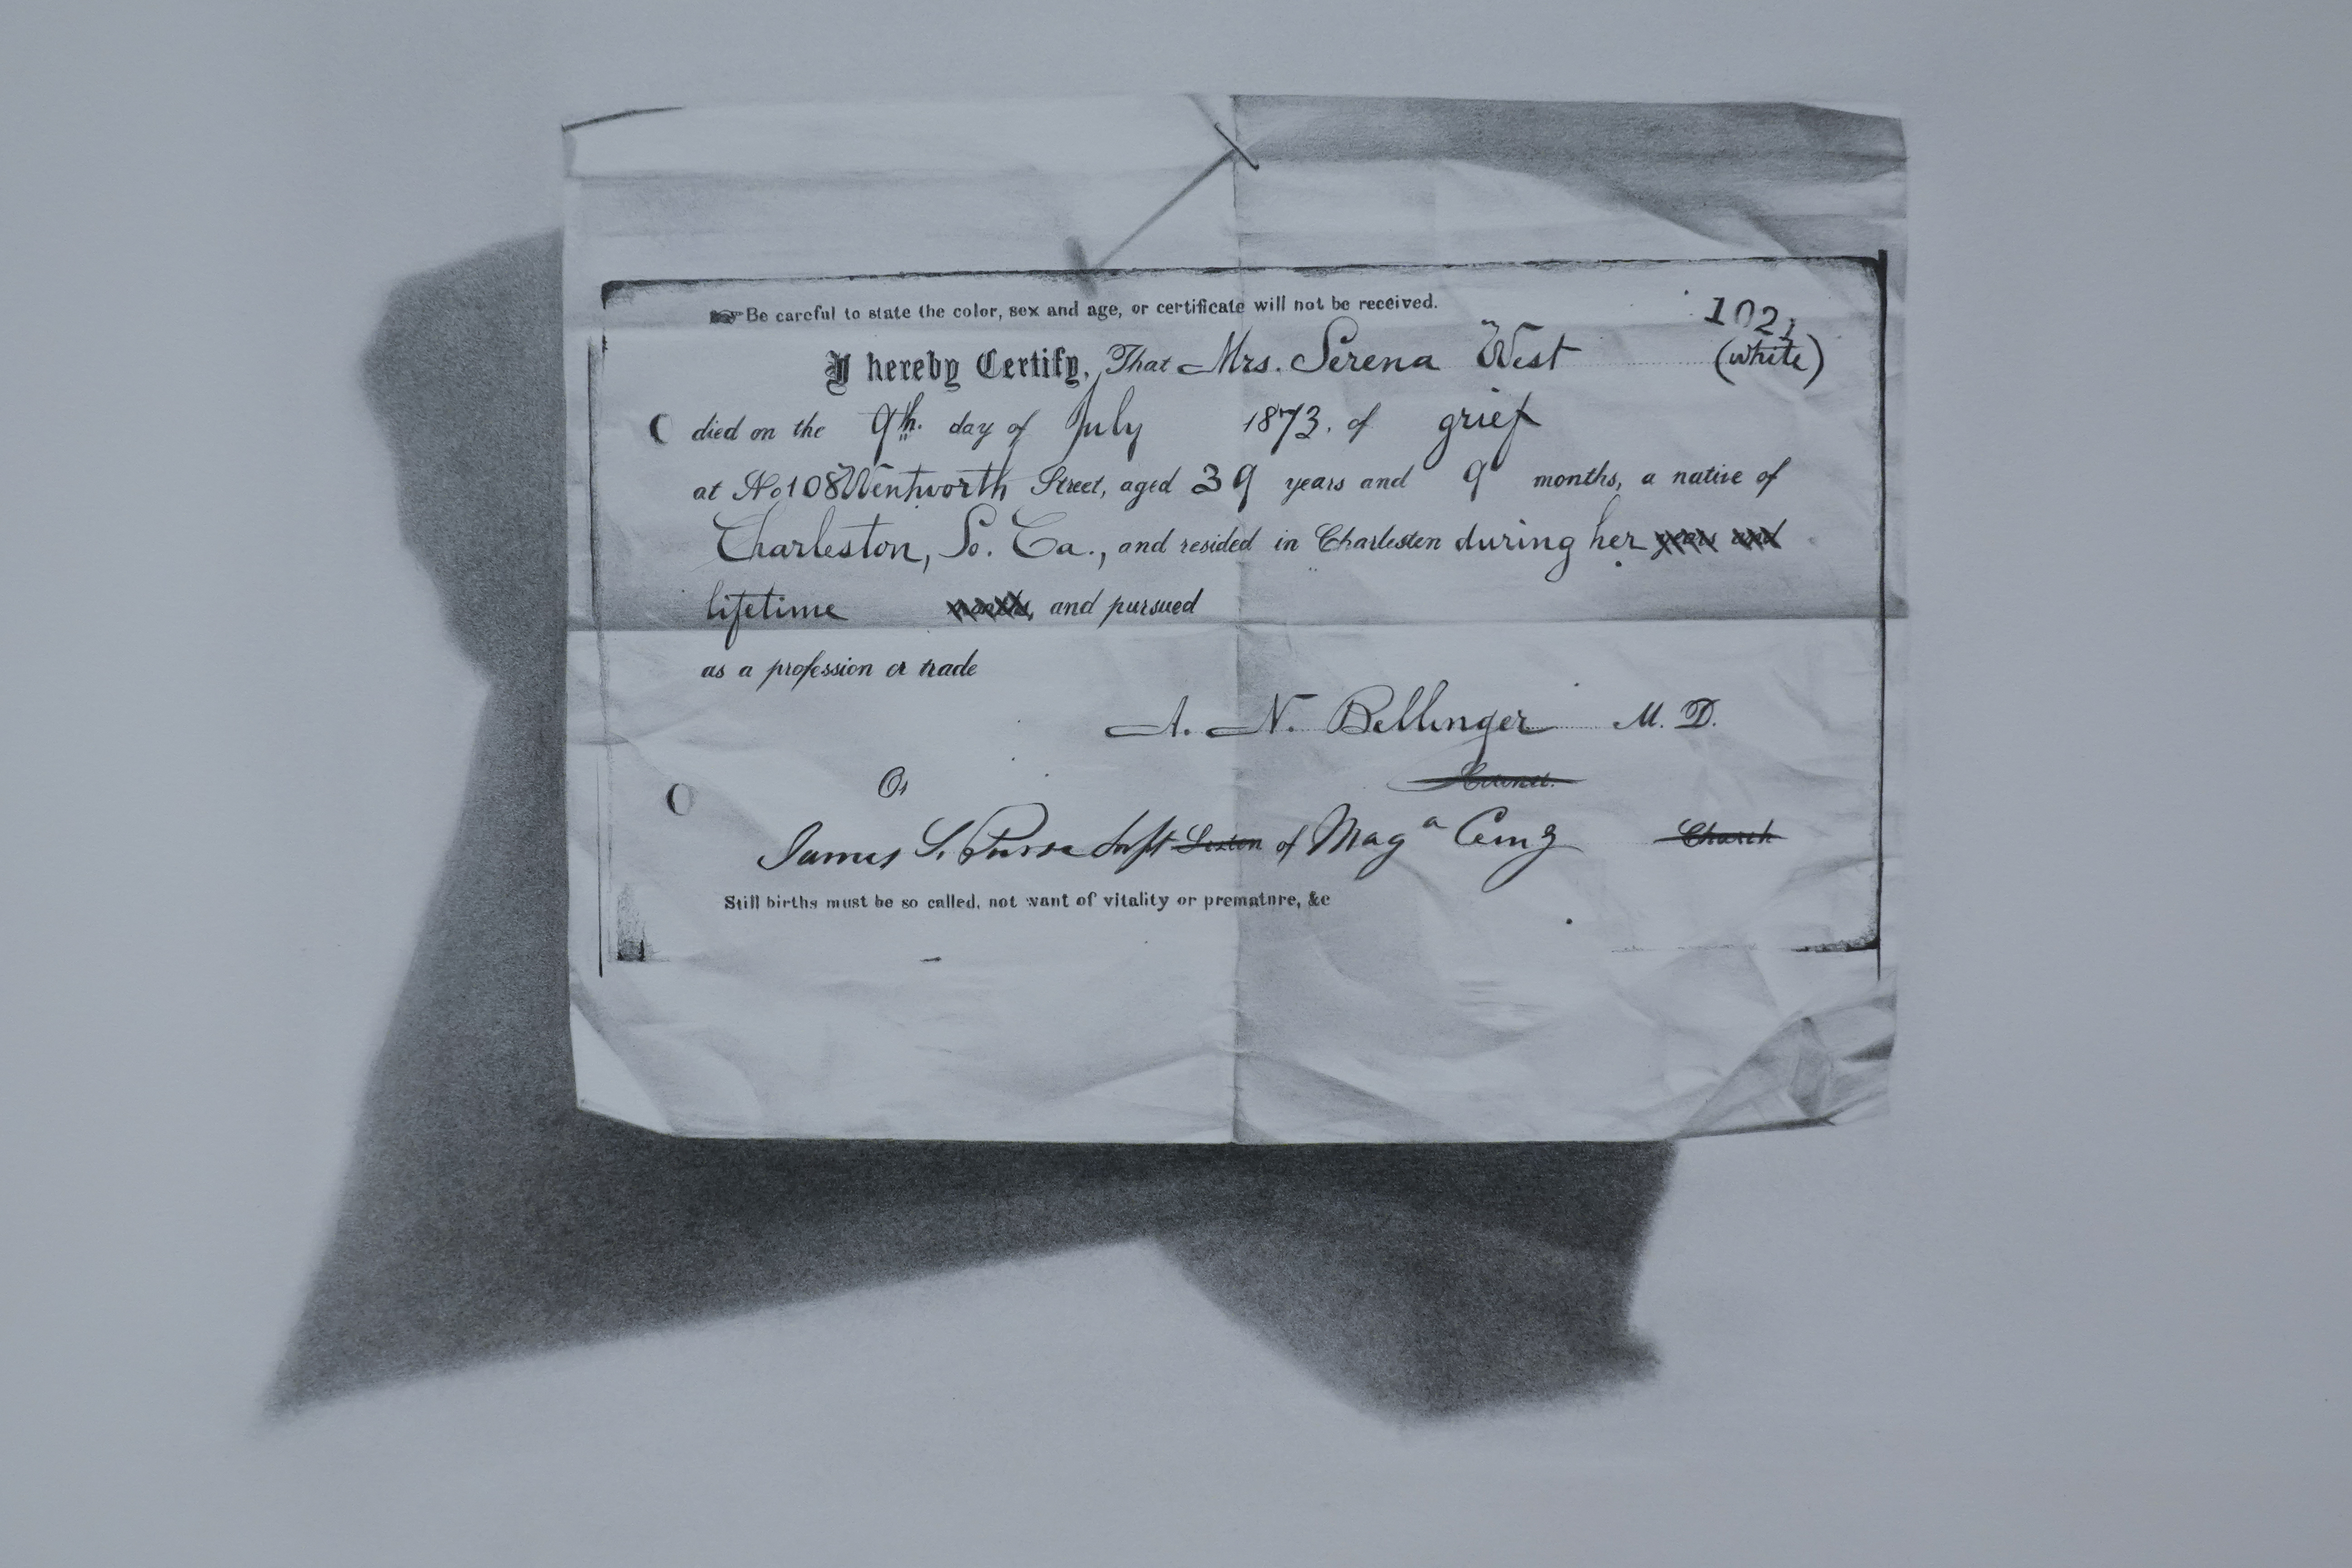 Be careful to state the color, sex and age, or certificate will not be received.
1021
I hereby Certify, That Mrs. Serena West (white)
died on the 9th. day of July 1873. of grief
at No 108 Wentworth Street, aged 39 years and 9 months, a native of
Charleston, So. Ca., and resided in Charleston during her years and
lifetime months, and pursued
as a profession or trade
A. N. Bellinger M. D.
Or
James S. of Mag a Church
Still births must be so called, not want of vitality or premature, &c